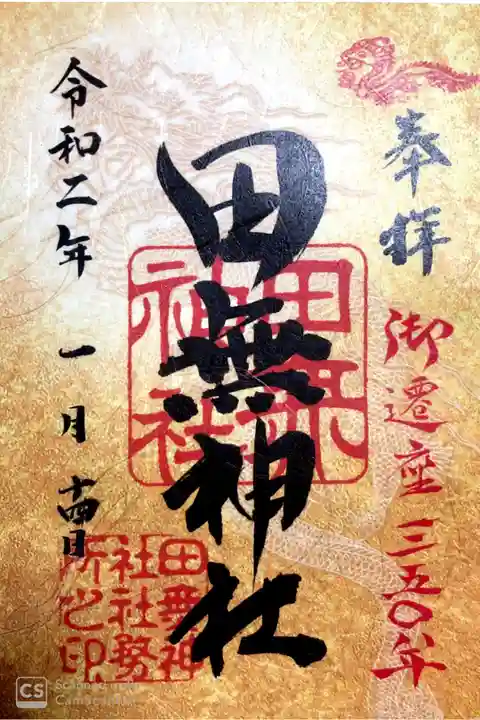 奉拝
御遷座三五〇年
田無神社
田無神社
令和二年 一月 十四日
田無神社社務所之印
CS Scanned with CamScanner